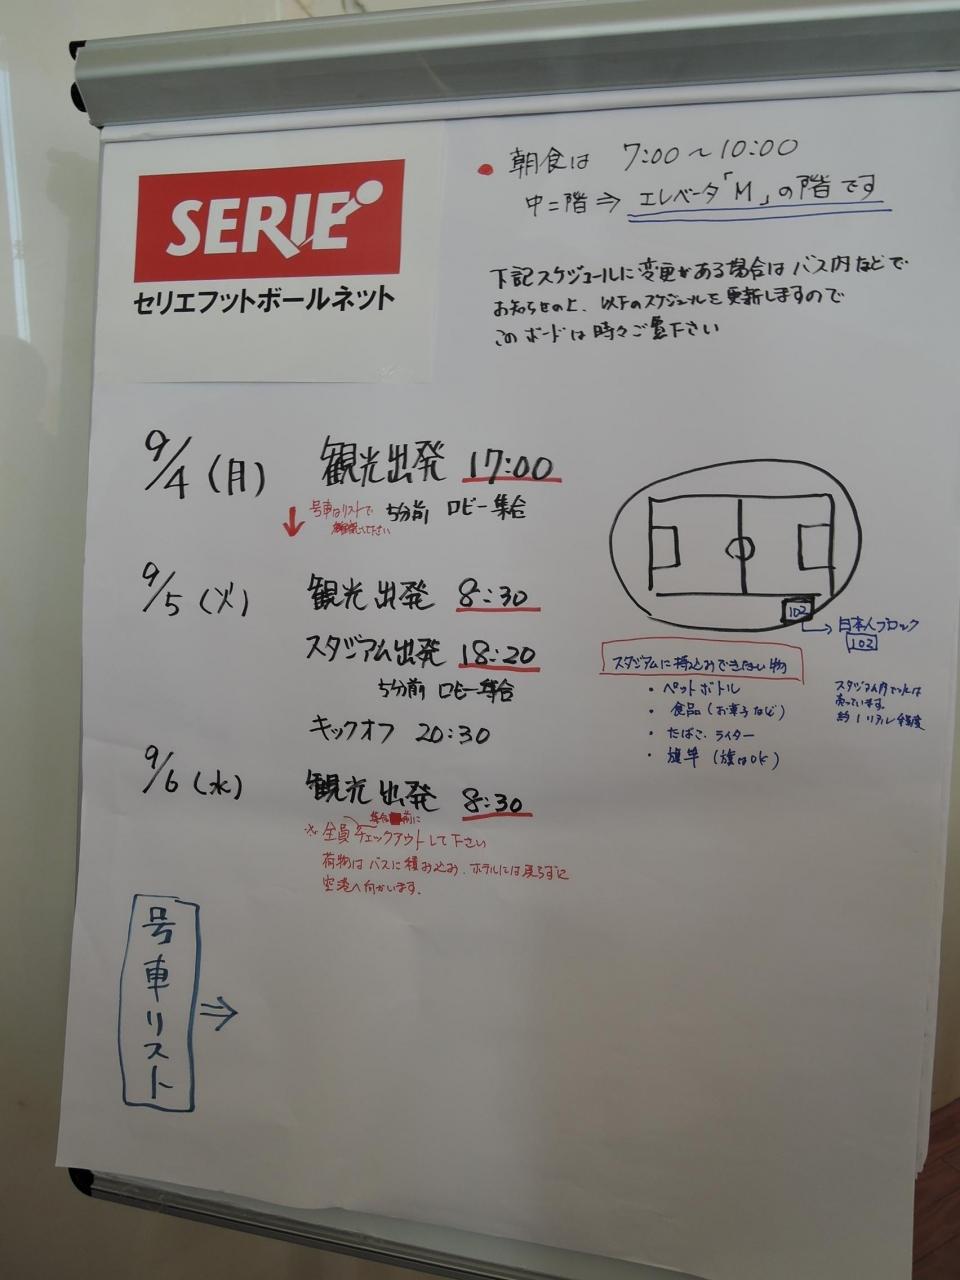 SERIE
セリエフットボールネット
• 朝食は 7:00〜10:00
中二階⇒エレベータ「M」の階です
下記スケジュールに変更がある場合はバス内などで
お知らせの上、以下のスケジュールを更新しますので
このボードは時々ご覧下さい
9/4(月) 観光出発 17:00
↓ 号車はリストで
確認して下さい
5分前 ロビー集合
9/5(火) 観光出発 8:30
スタジアム出発 18:20
5分前 ロビー集合
キックオフ 20:30
9/6(水) 観光出発 8:30
集合前に
※全員チェックアウトして下さい
荷物はバスに積み込み、ホテルには戻らずに
空港へ向かいます。
102
日本人ブロック
102
スタジアムに持込みできない物
・ペットボトル
・食品(お菓子など)
・たばこ、ライター
・旗竿(旗はOK)
スタジアム内で
売っています。
約1リアル程度
号車リスト ⇒